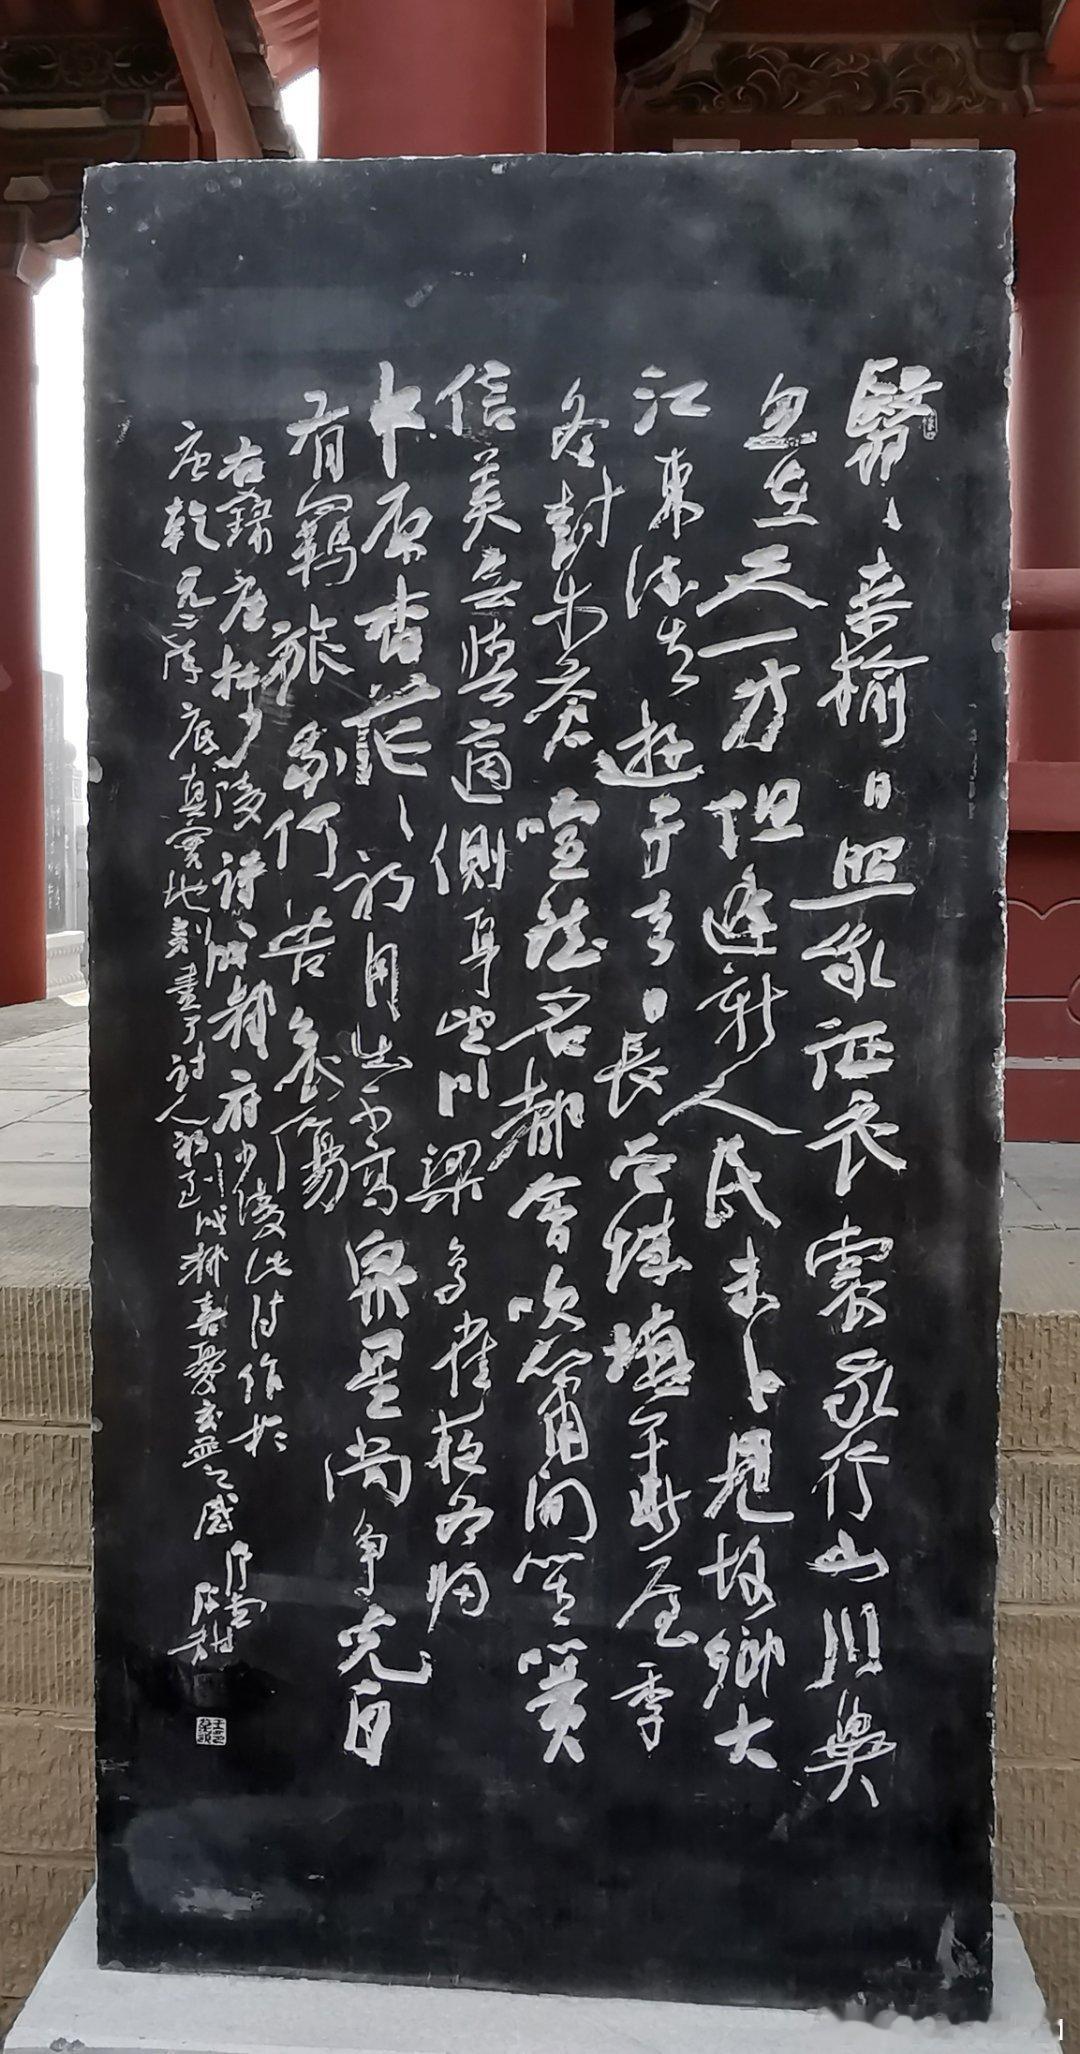 翳〻桑榆日照我征衣裳我行山川異
忽在天一方但逢新人民未卜見故鄉大
江東流去遊子去日長曾城填華屋季
冬樹木蒼喧然名都會吹簫間笙簧
信美無與適側身望川梁鳥雀夜各歸
中原杳茫〻初月出不高衆星尚爭光自
有羈旅我何苦哀傷
右錄唐杜少陵詩成都府少陵此詩作於
唐乾元二年底真實地刻畫了詩人初到成都喜憂交並之感